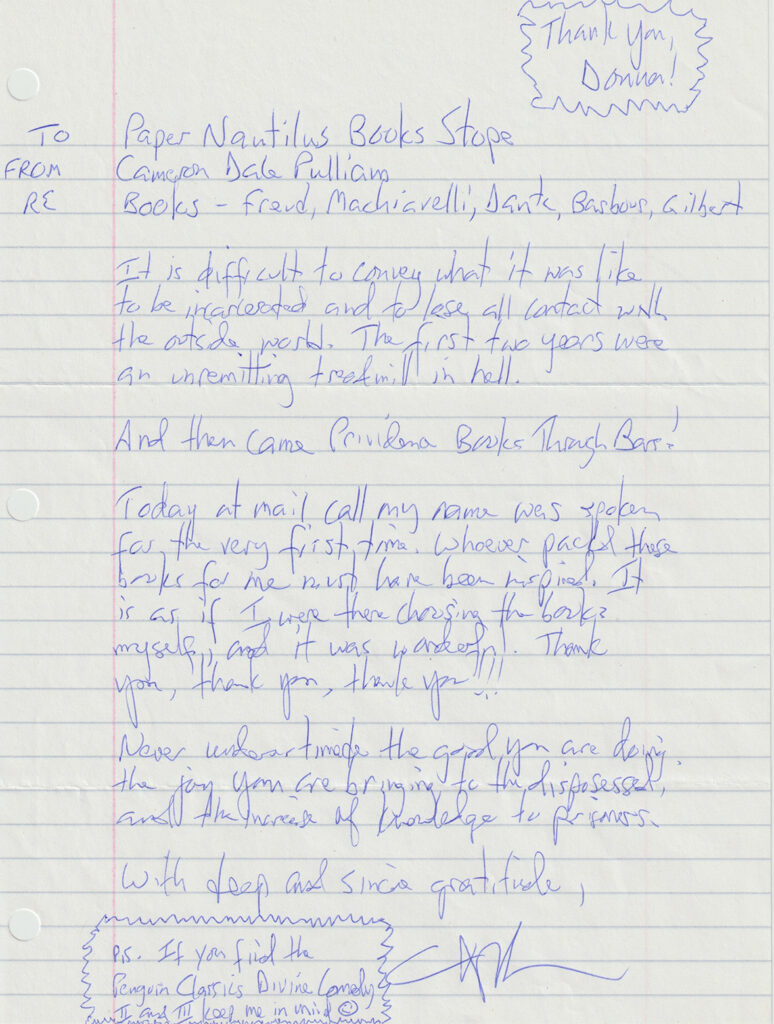 Thank you,
Donna!
TO Paper Nautilus Books Stope
FROM Cameron Dale Pulliam
RE Books – Freud, Machiavelli, Dante, Barbour, Gilbert
It is difficult to convey what it was like
to be incarcerated and to lose all contact with
the outside world. The first two years were
an unremitting treadmill in hell.
And then came Providence Books Through Bars!
Today at mail call my name was spoken
for the very first time. Whoever packed these
books for me must have been inspired. It
is as if I were there choosing the books
myself, and it was wonderful. Thank
you, thank you, thank you!!!
Never underestimate the good you are doing,
the joy you are bringing to the dispossessed,
and the increase of knowledge to prisoners.
With deep and sincere gratitude,
P.S. If you find the
Penguin Classics Divine Comedy
II and III keep me in mind ☺